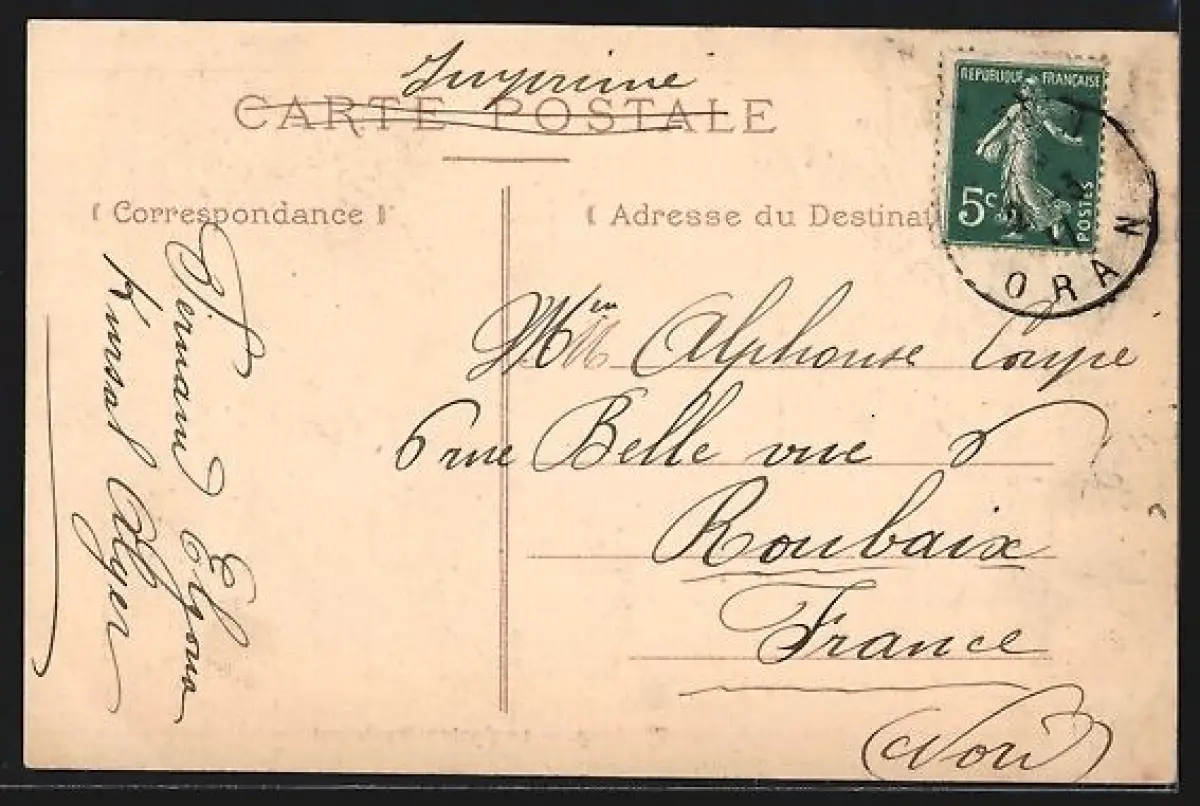 Imprimé
CARTE POSTALE
( Correspondance )
( Adresse du Destinat
REPUBLIQUE FRANÇAISE
5c
POSTES
ORAN
Alphonse
6 rue Belle vue 6
Roubaix
France
(Nord)
Kursal Alger